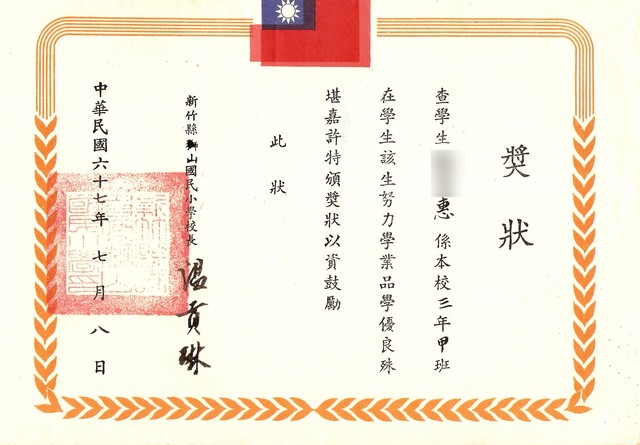 獎狀
查學生 惠係本校三年甲班
在學生該生努力學業品學優良殊
堪嘉許特頒獎狀以資鼓勵
此狀
新竹縣獅山國民小學校長 溫貢琳
中華民國六十七年七月八日